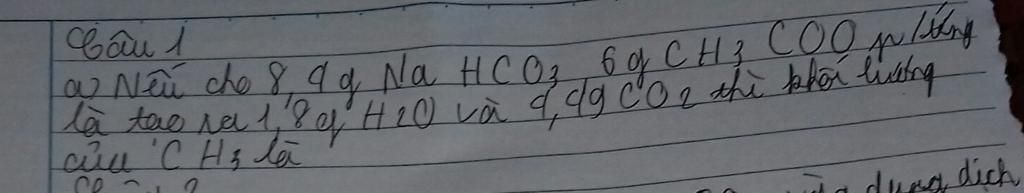 Câu 1
a) Nếu cho 8,4g NaHCO3 6g CH3COO
là tạo ra 1,8g H2O và 4,4g CO2 thì khối lượng
của CH3 là
dung dịch